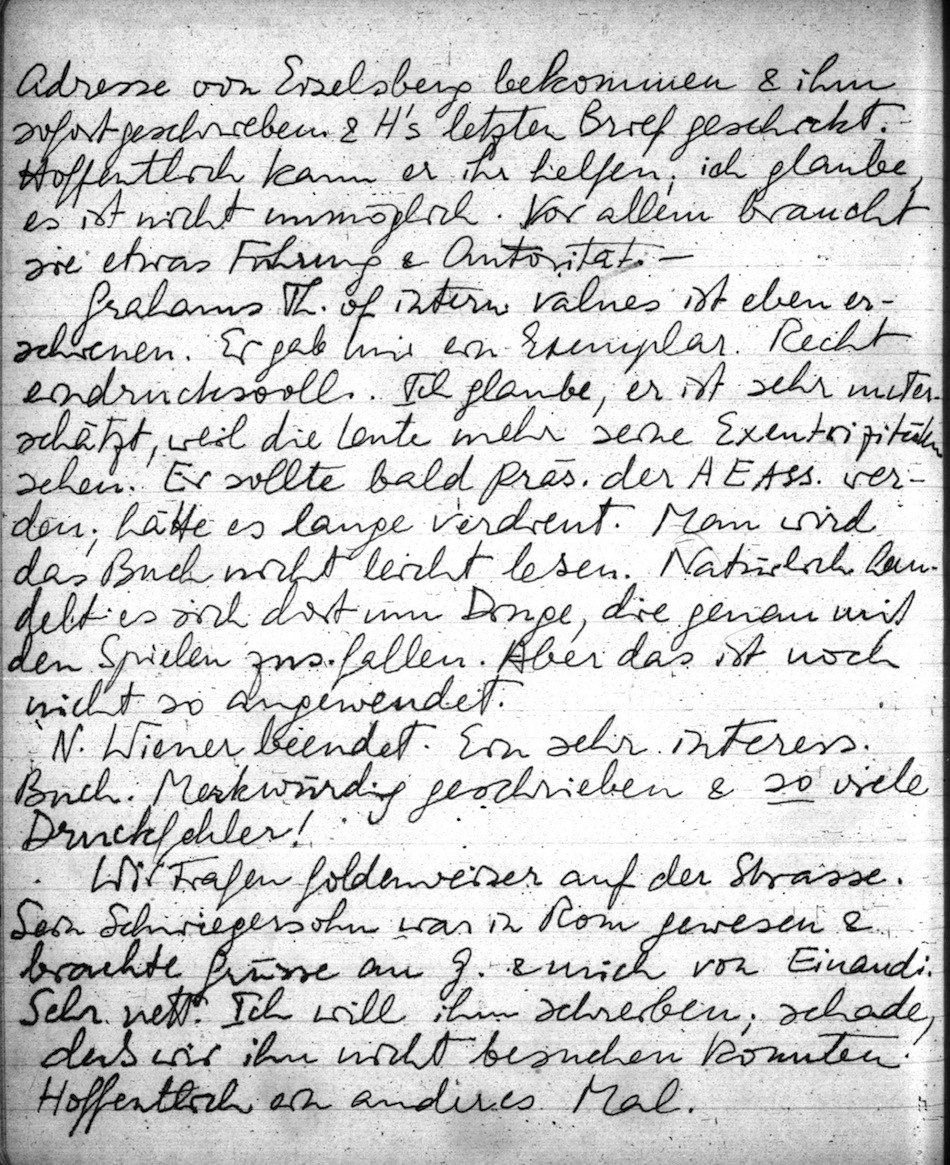 Adresse von Eiselsberg bekommen & ihm
sofort geschrieben & H's letzten Brief geschickt.
Hoffentlich kann er ihr helfen; ich glaube,
es ist nicht unmöglich. Vor allem braucht
sie etwas Führung & Autorität. –
Grahams Th. of intern values ist eben er-
schienen. Er gab mir ein Exemplar. Recht
eindrucksvoll. Ich glaube, er ist sehr unter-
schätzt, weil die Leute mehr seine Exentrizitäten
sehen. Er sollte bald Präs. der A E Ass. wer-
den; hätte es lange verdient. Man wird
das Buch nicht leicht lesen. Natürlich han-
delt es sich dort um Dinge, die genau mit
den Spielen zus.fallen. Aber das ist noch
nicht so angewendet.
N. Wiener beendet. Ein sehr interess.
Buch. Merkwürdig geschrieben & so viele
Druckfehler!
Wir trafen Goldenweiser auf der Strasse.
Sein Schwiegersohn war in Rom gewesen &
brachte Grüsse an D. & mich von Einaudi.
Sehr nett. Ich will ihm schreiben; schade,
dass wir ihn nicht besuchen konnten.
Hoffentlich ein anderes Mal.